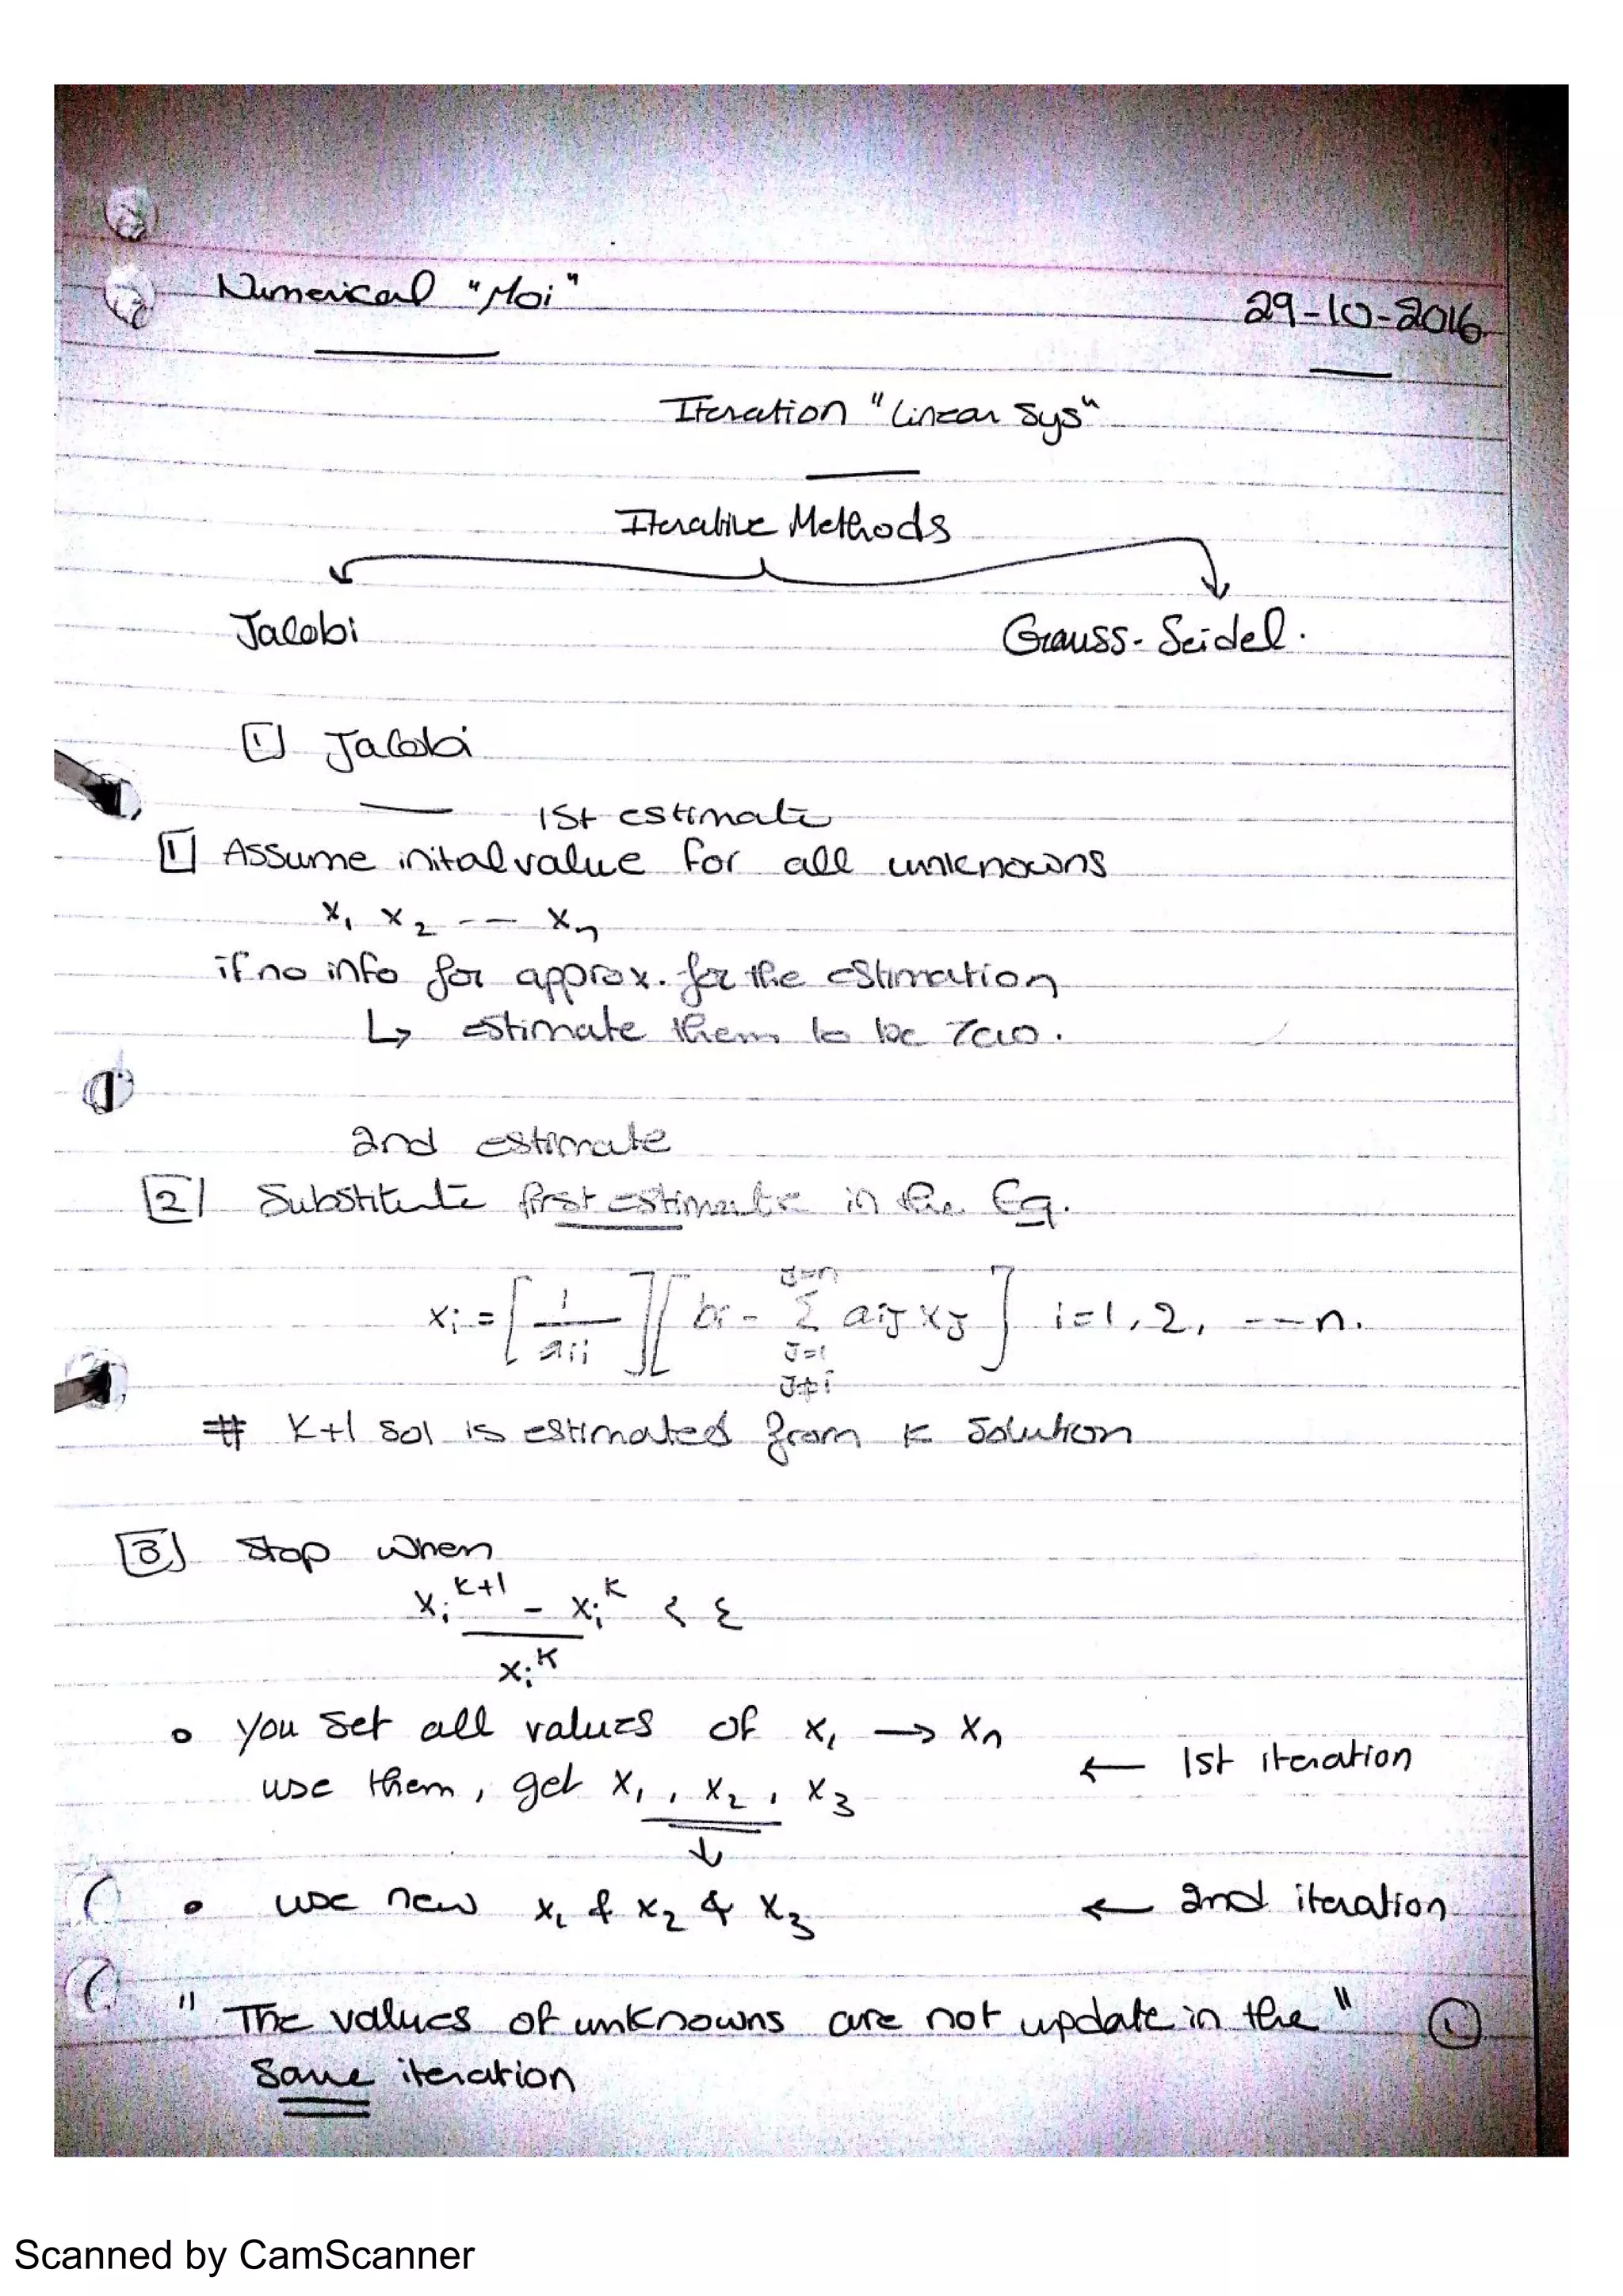 Numerical "Moi"
29-10-2016
Iteration "linear sys"
Iterative Methods
Jacobi
Gauss-Seidel.
1 Jacobi
1st estimate
1 Assume inital value for all unknowns
x₁ x₂ --- xₙ
if no info for approx. for the estimation
↳ estimate them to be zero.
2nd estimate
2 Substitute first estimate in the Eq.
xᵢ = [1/aᵢᵢ][bᵢ - Σ_{J=1, J≠i}^{J=n} aᵢⱼ xⱼ] i=1,2, --- n.
# K+1 sol is estimated from K solution
3 Stop when
(xᵢᴷ⁺¹ - xᵢᴷ)/xᵢᴷ < ε
• you set all values of x₁ → xₙ
use them, get x₁, x₂, x₃ ← 1st iteration
↓
• use new x₁ & x₂ & x₃ ← 2nd iteration
"The values of unknowns are not update in the" 1
same iteration
Scanned by CamScanner